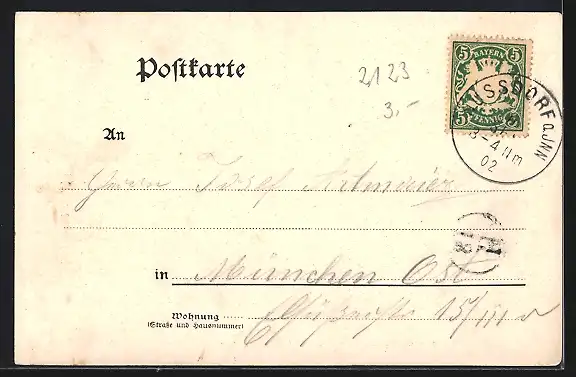 Postkarte
2123
3,-
5 BAYERN 5
5 PFENNIG 5
USSDORF a. INN
3-4 Nm
02
An
Herrn Josef
in München Ost
Wohnung
(Straße und Hausnummer)
15/III